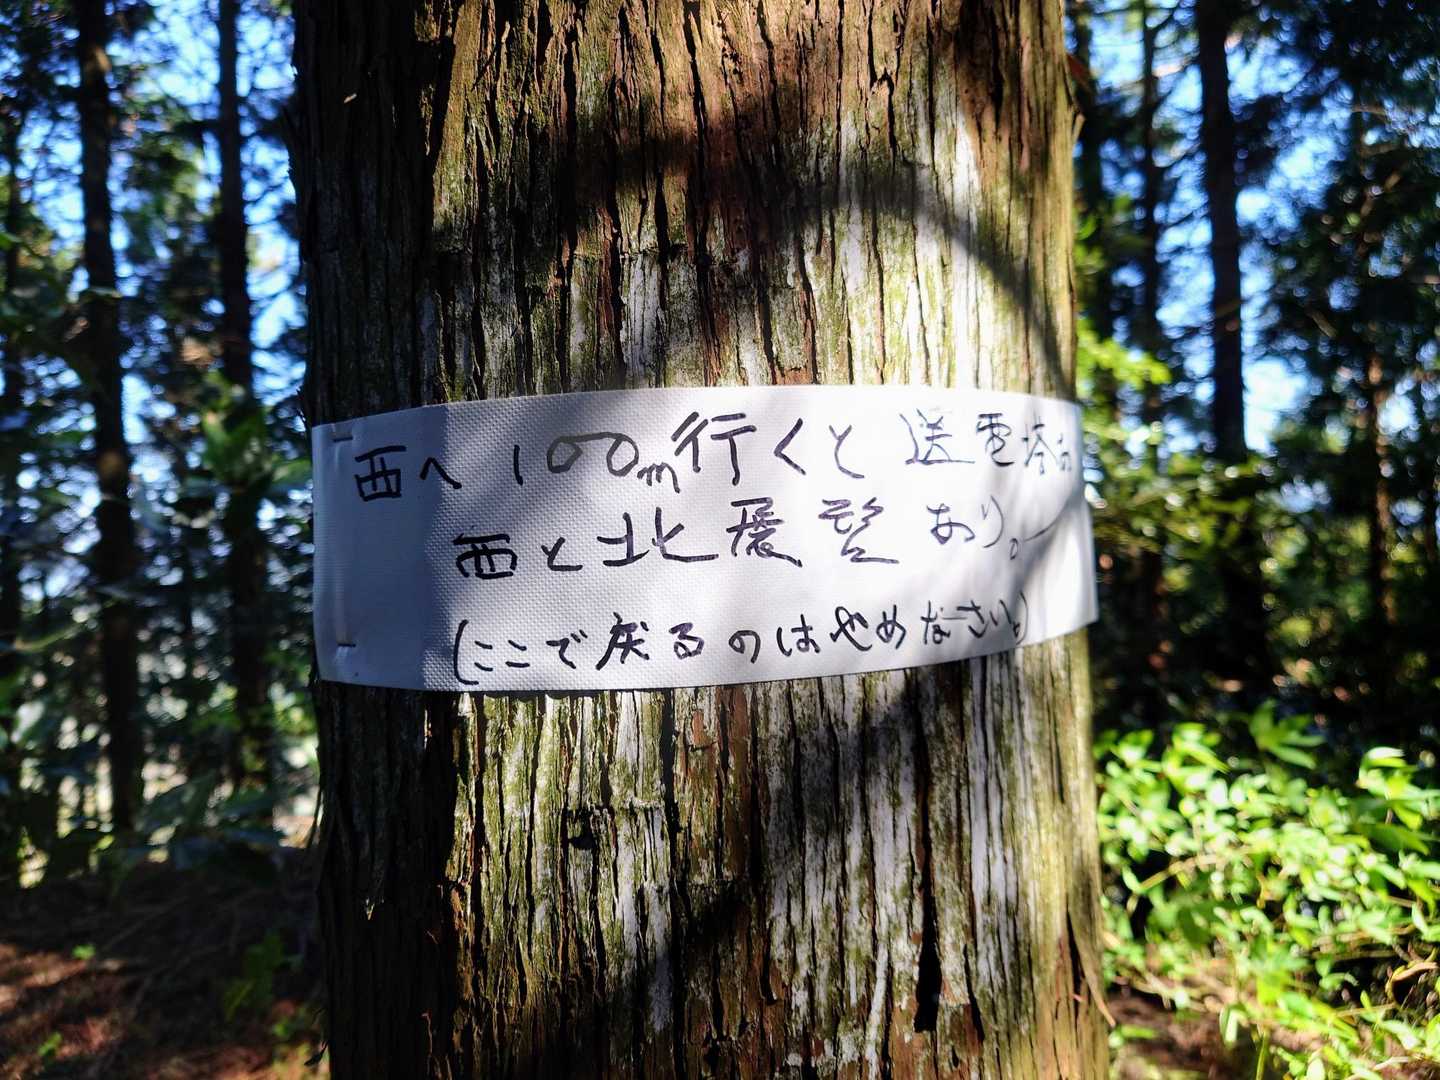 西へ100m行くと送電塔の
西と北展望あり。
(ここで戻るのはやめなさい。)